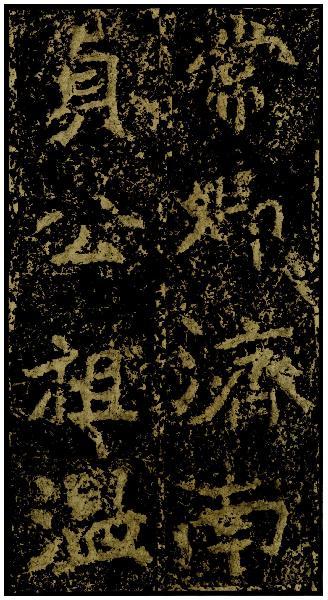 常卿濟南
貞公祖溫